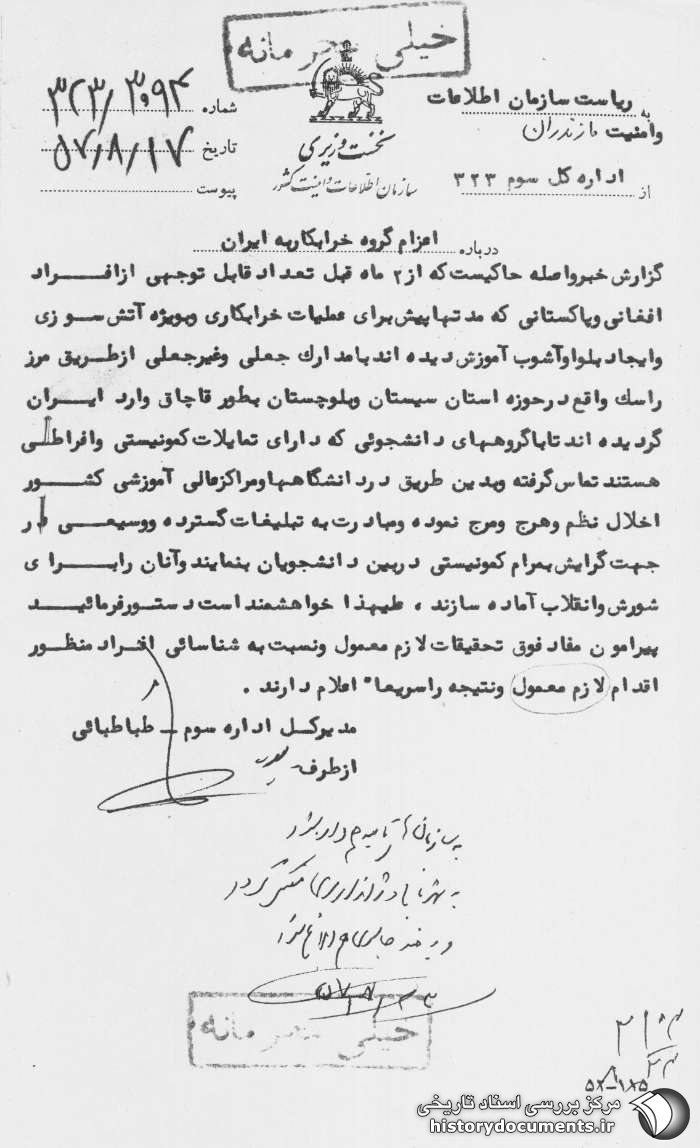 خیلی محرمانه
به ریاست سازمان اطلاعات
وامنیت مازندران
از اداره کل سوم ۳۲۳
نخست وزیری
سازمان اطلاعات و امنیت کشور
شماره ۳۲۳/۳۰۹۴
تاریخ ۵۷/۸/۱۷
پیوست
درباره اعزام گروه خرابکاربه ایران
گزارش خبرواصله حاکیست که از ۲ ماه قبل تعداد قابل توجهی ازافراد
افغانی وپاکستانی که مدتهاپیش برای عملیات خرابکاری وبویژه آتش سوزی
وایجاد بلواوآشوب آموزش دیده اند بامدارك جعلی وغیرجعلی ازطریق مرز
راسك واقع درحوزه استان سیستان وبلوچستان بطور قاچاق وارد ایران
گردیده اند تاباگروههای دانشجوئی که دارای تمایلات کمونیستی وافراطی
هستند تماس گرفته وبدین طریق در دانشگاهها ومراکزعالی آموزشی کشور
اخلال نظم وهرج ومرج نموده ومبادرت به تبلیغات گسترده ووسیعی در
جهت گرایش بمرام کمونیستی دربین دانشجویان بنمایند وآنان رابرای
شورش وانقلاب آماده سازند ، علیهذا خواهشمند است دستورفرمائید
پیرامون مفاد فوق تحقیقات لازم معمول ونسبت به شناسائی افراد منظور
اقدام لازم معمول ونتیجه راسریعا" اعلام دارند .
مدیرکل اداره سوم ـ طباطبائی
ازطرف
۵۷/۸/۲۳
خیلی محرمانه
مرکز بررسی اسناد تاریخی
historydocuments.ir